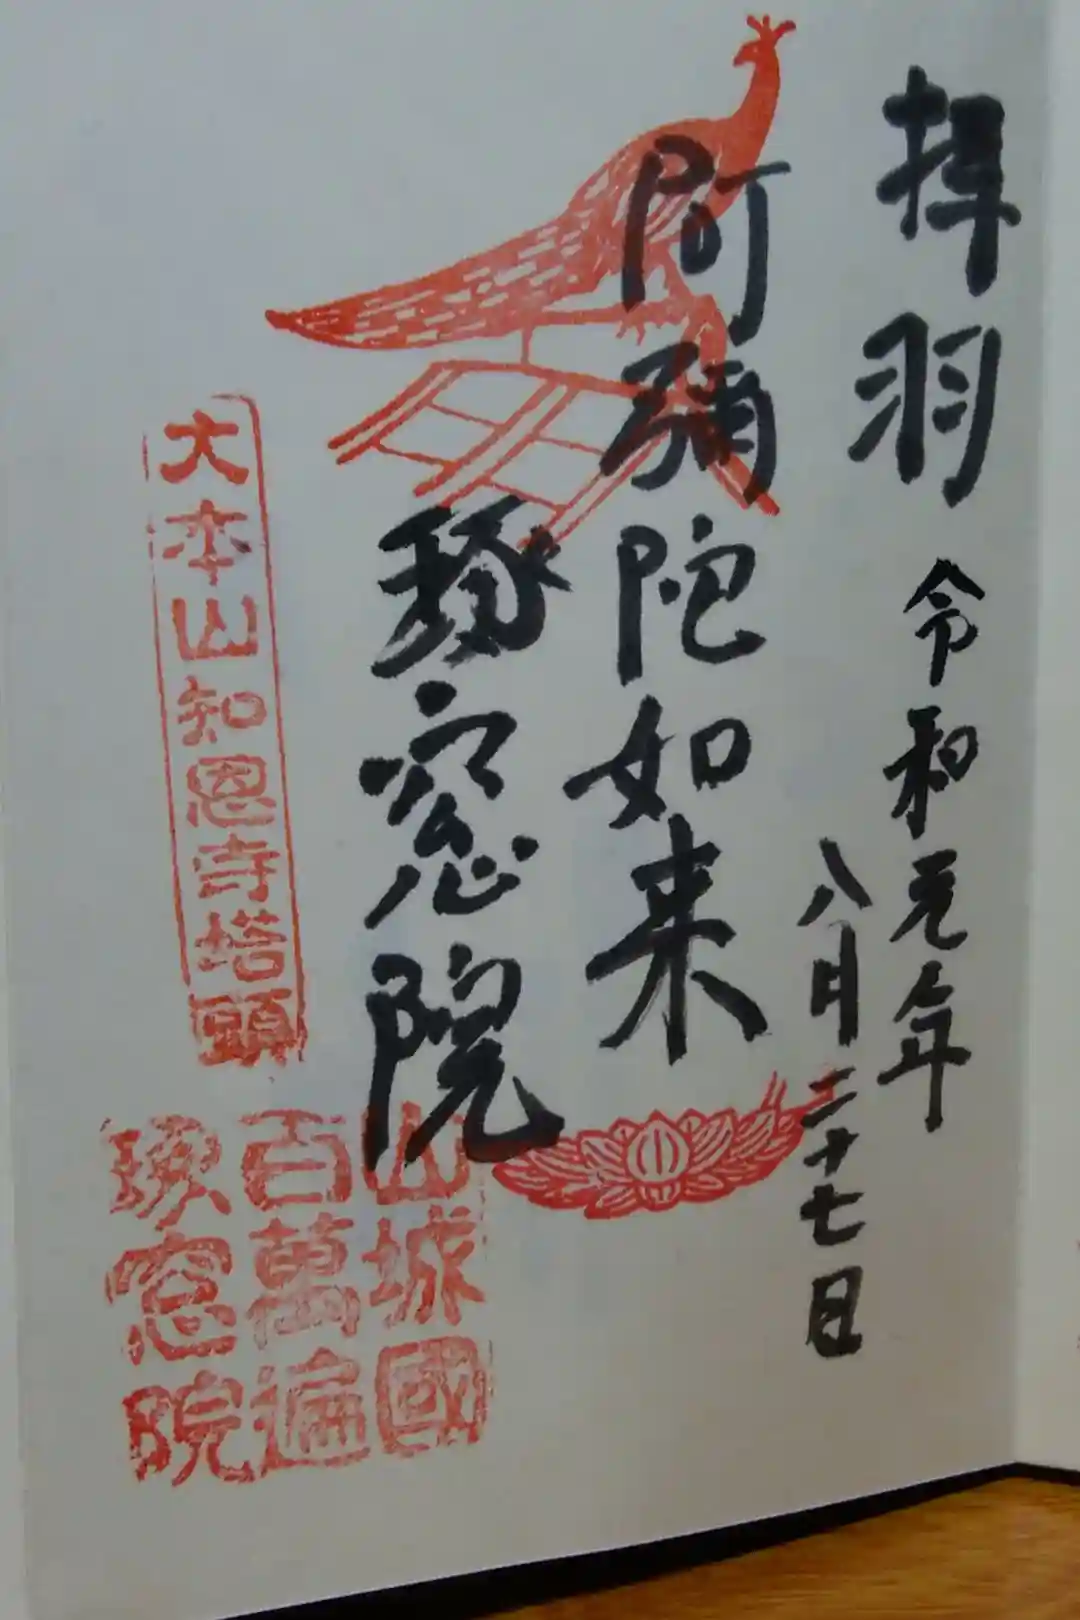 羽
令和元年
八月二十七日
阿彌陀如来
琢窓院
大本山知恩寺塔頭
山城國
百萬遍
琢窓院